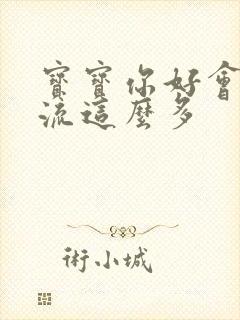 寶寶你好會
流這麼多
術小城